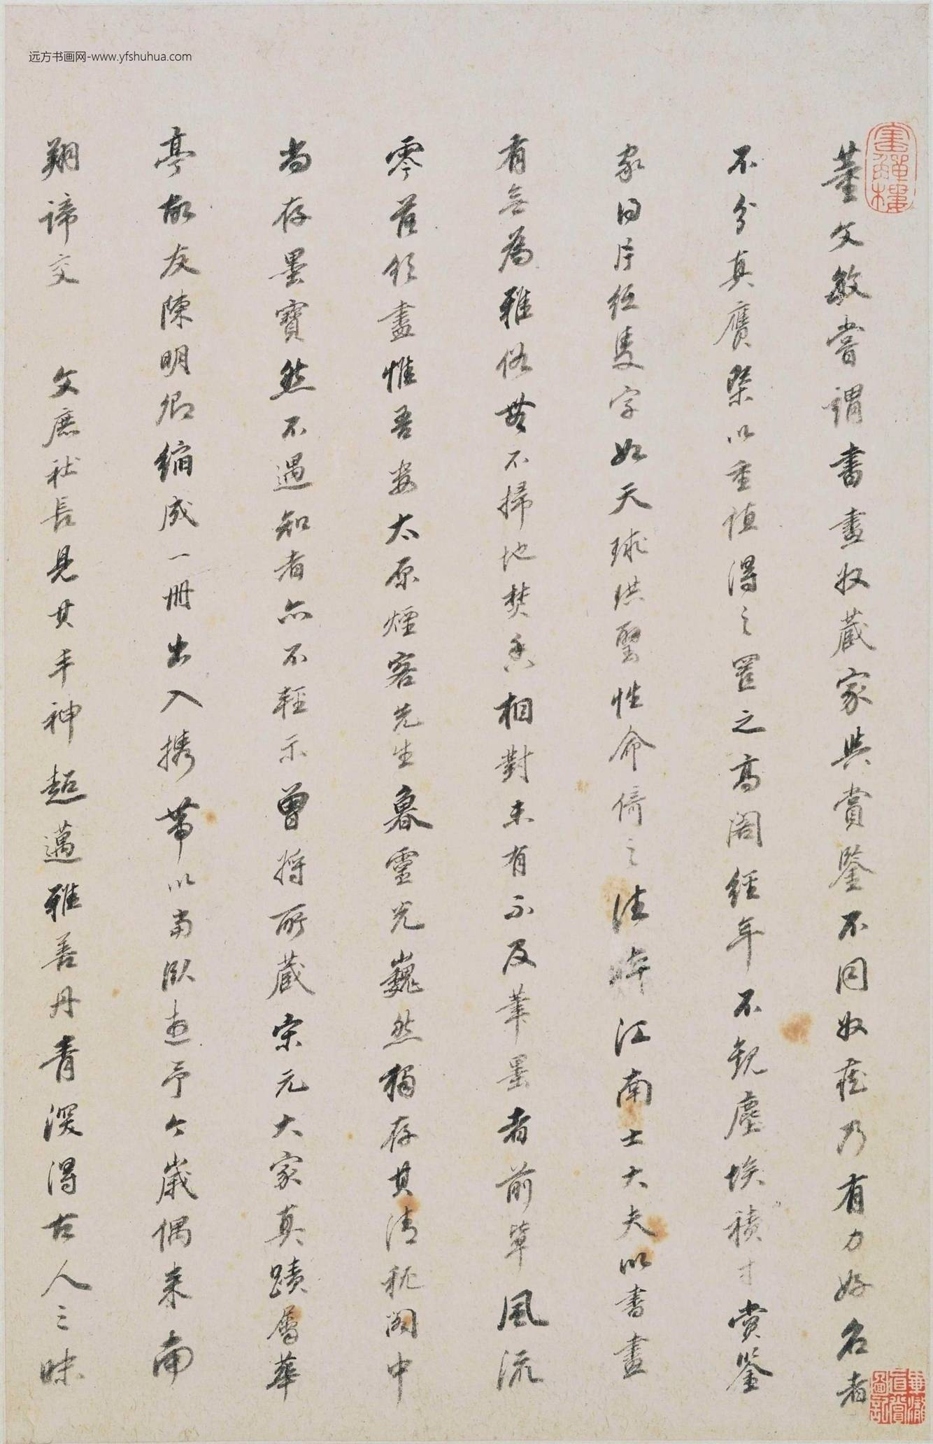 远方书画网-www.yfshuhua.com
董文敏嘗謂書畫收藏家與賞鑒不同收藏乃有力好名者
不分真贗槩以重值得之置之高閣經年不觀塵埃積寸賞鑒
家日片紙隻字如天球珙璧性命倚之往時江南士大夫以書畫
有無為雅俗無不掃地焚香相對未有不及筆墨者前輩風流
零落殆盡惟吾婁太原煙客先生魯靈光巍然獨存其清秘閣中
尚存墨寶然不遇知者亦不輕示曾將所藏宋元大家真蹟屬華
亭故友陳明卿縮成一冊出入攜帶以當臥遊予今歲偶來南
翔諦交 文庶社長見其丰神超邁雅善丹青深得古人三昧